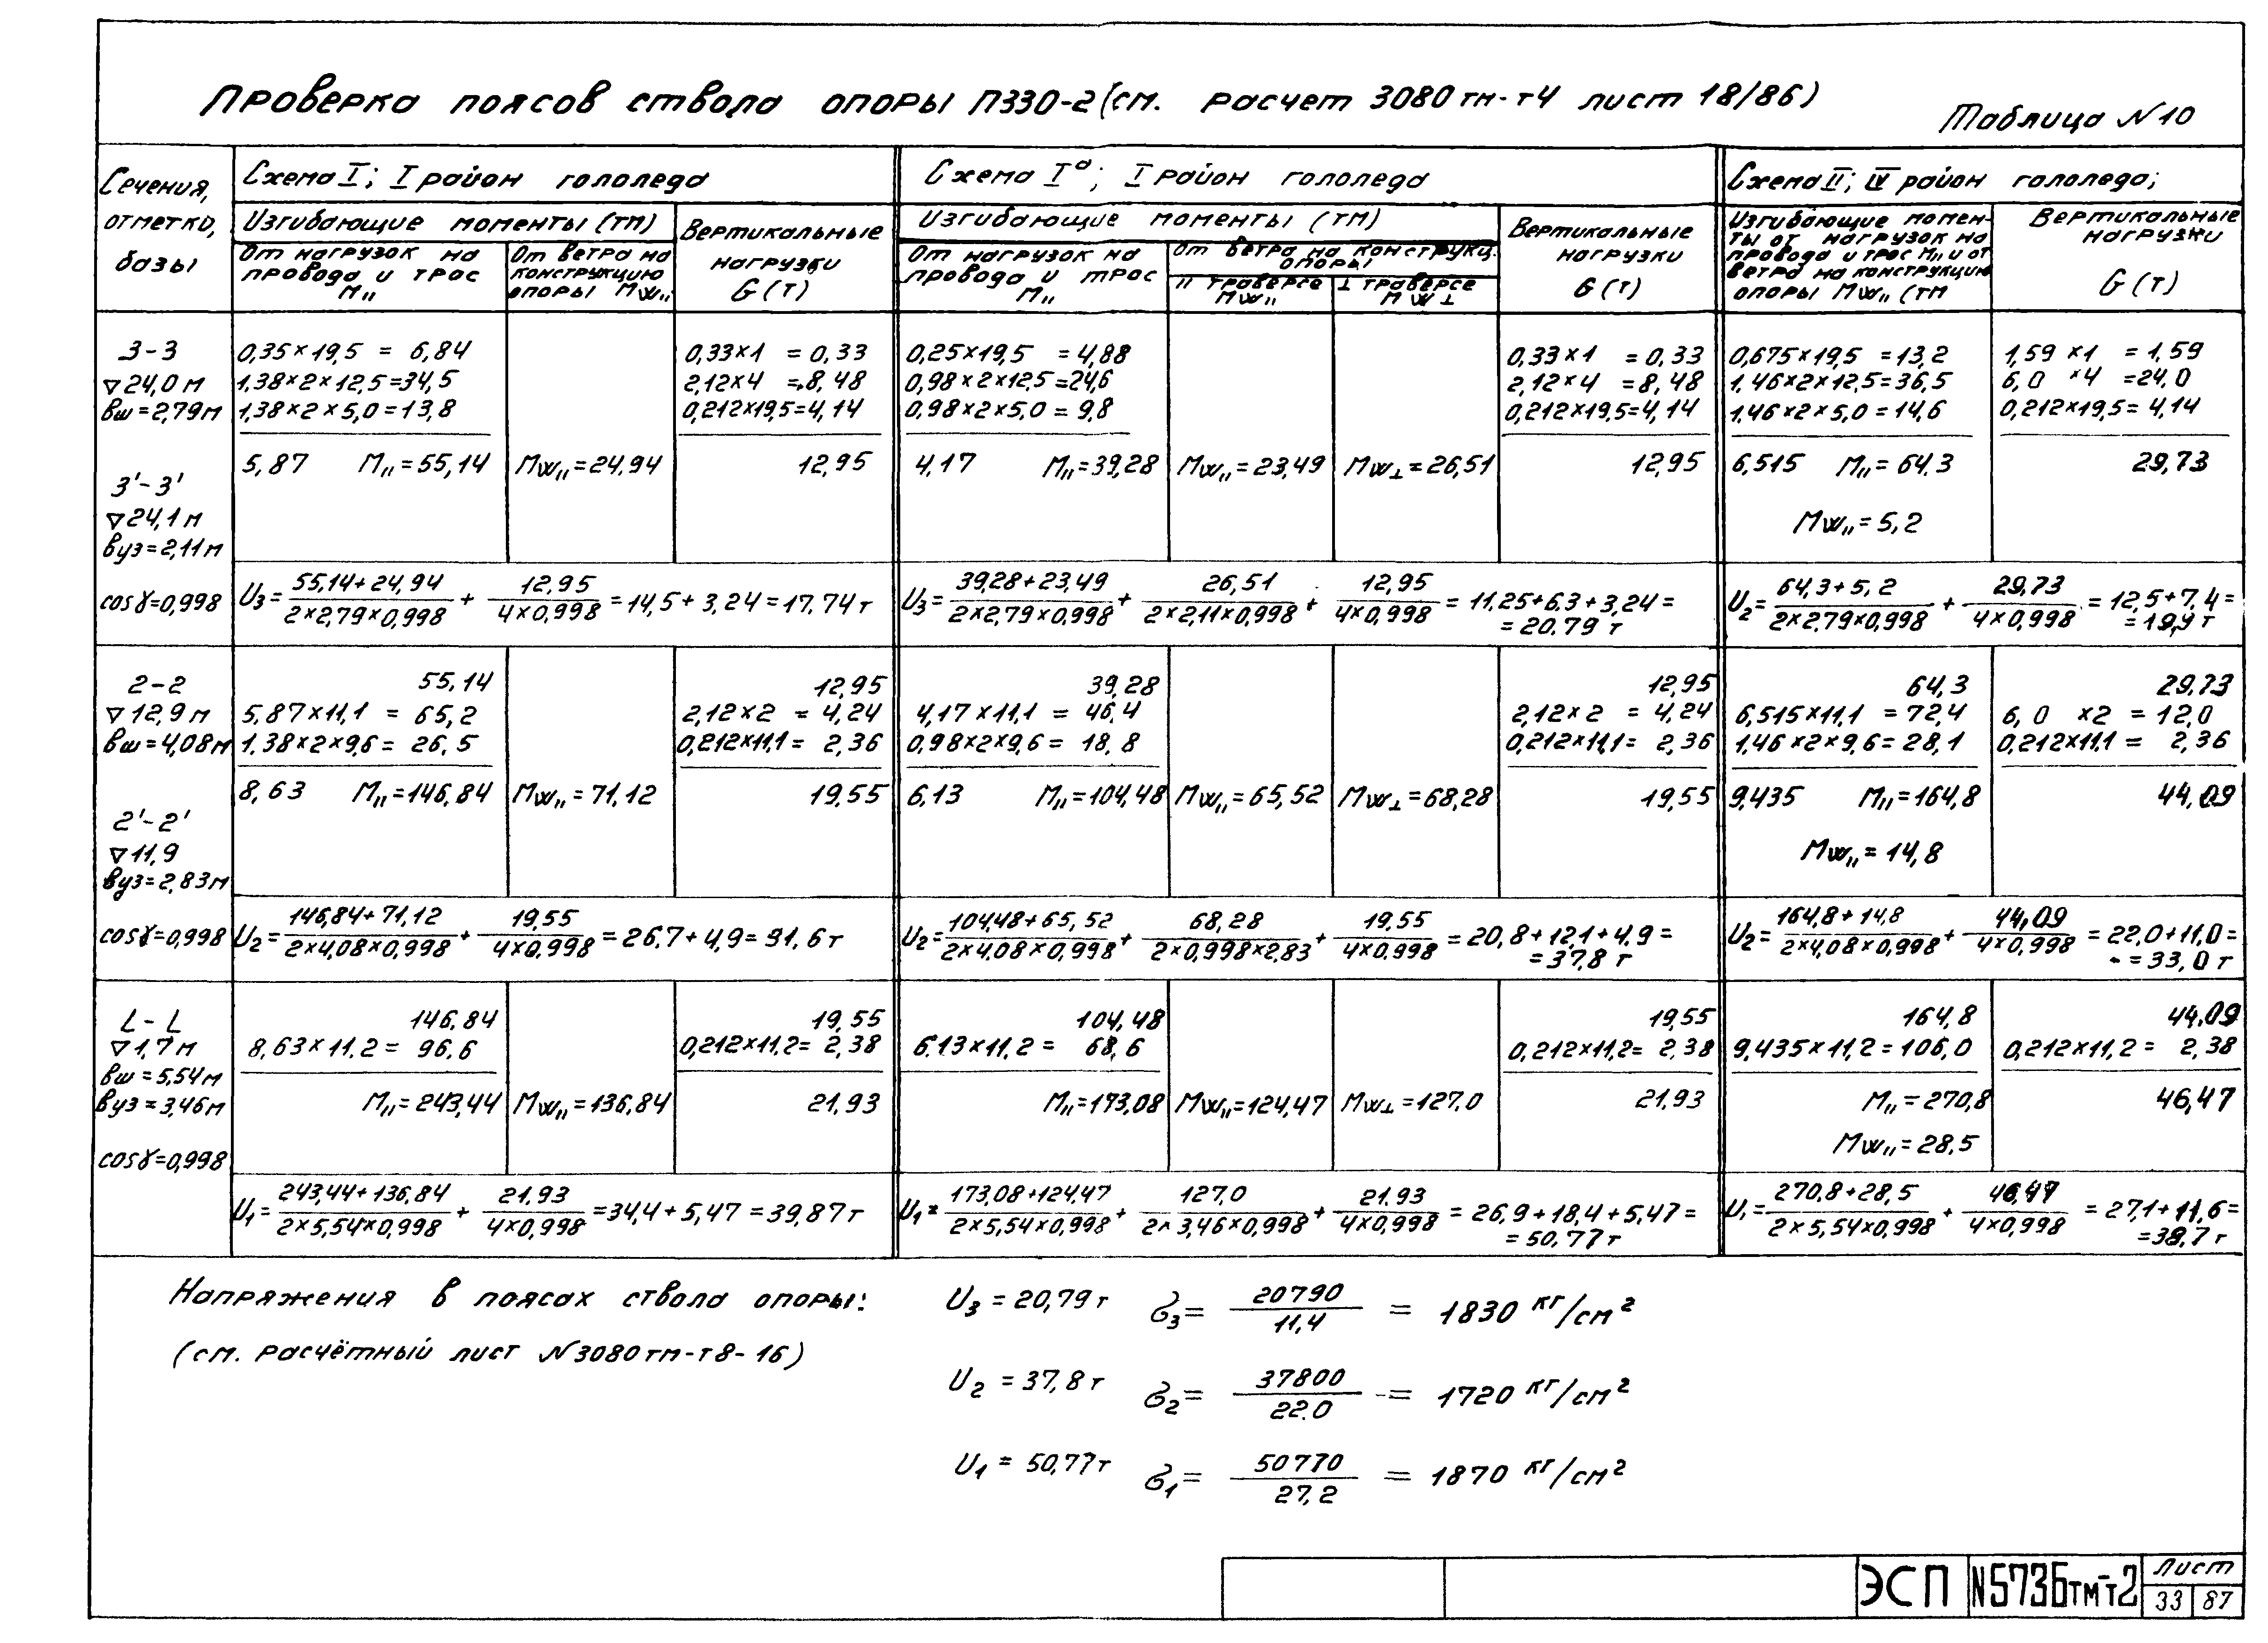 Проверка поясов ствола опоры П330-2 (см. расчет 3080тм-т4 лист 18/86)
Таблица №10
Сечения,
отметка,
базы
Схема I; I район гололеда
Изгибающие моменты (тм)
От нагрузок на
провода и трос
M''
От ветра на
конструкцию
опоры MW''
Вертикальные
нагрузки
G (т)
Схема Iа; I район гололеда
Изгибающие моменты (тм)
От нагрузок на
провода и трос
M''
От ветра на конструкц.
опоры
'' траверсе
MW''
⊥ траверсе
MW⊥
Вертикальные
нагрузки
G (т)
Схема II; IV район гололеда;
Изгибающие момен-
ты от нагрузок на
провода и трос M'' и от
ветра на конструкцию
опоры MW'' (тм
Вертикальные
нагрузки
G (т)
3-3
▽24,0 м
вш=2,79м
3'-3'
▽24,1м
вуз=2,11м
cosγ=0,998
0,35×19,5 = 6,84
1,38×2×12,5=34,5
1,38×2×5,0=13,8
5,87 M''=55,14
MW''=24,94
0,33×1 = 0,33
2,12×4 = 8,48
0,212×19,5=4,14
12,95
0,25×19,5 =4,88
0,98×2×12,5=24,6
0,98×2×5,0 = 9,8
4,17 M''=39,28
MW''=23,49
MW⊥=26,51
0,33×1 = 0,33
2,12×4 = 8,48
0,212×19,5=4,14
12,95
0,675×19,5 =13,2
1,46×2×12,5=36,5
1,46×2×5,0 =14,6
6,515 M''= 64,3
MW''= 5,2
1,59 ×1 = 1,59
6,0 ×4 =24,0
0,212×19,5= 4,14
29,73
U3= 55,14+24,94 / 2×2,79×0,998 + 12,95 / 4×0,998 =14,5+3,24=17,74т
U3= 39,28+23,49 / 2×2,79×0,998 + 26,51 / 2×2,11×0,998 + 12,95 / 4×0,998 = 11,25+6,3+3,24=
= 20,79 т
U2= 64,3+5,2 / 2×2,79×0,998 + 29,73 / 4×0,998 = 12,5+7,4=
=19,9 т
2-2
▽12,9м
вш=4,08м
2'-2'
▽11,9
вуз=2,83м
cosγ=0,998
55,14
5,87×11,1 = 65,2
1,38×2×9,6= 26,5
8,63 M''=146,84
MW''=71,12
12,95
2,12×2 = 4,24
0,212×11,1= 2,36
19,55
39,28
4,17×11,1 = 46,4
0,98×2×9,6= 18,8
6,13 M''=104,48
MW''=65,52
MW⊥=68,28
12,95
2,12×2 = 4,24
0,212×11,1= 2,36
19,55
64,3
6,515×11,1 =72,4
1,46×2×9,6=28,1
9,435 M''=164,8
MW''= 14,8
29,73
6,0 ×2 = 12,0
0,212×11,1 = 2,36
44,09
U2= 146,84+71,12 / 2×4,08×0,998 + 19,55 / 4×0,998 =26,7+4,9=31,6т
U2= 104,48+65,52 / 2×4,08×0,998 + 68,28 / 2×0,998×2,83 + 19,55 / 4×0,998 =20,8+12,1+4,9=
=37,8 т
U2= 164,8+14,8 / 2×4,08×0,998 + 44,09 / 4×0,998 =22,0+11,0=
=33,0 т
L-L
▽1,7м
вш=5,54м
вуз=3,46м
cosγ=0,998
146,84
8,63×11,2= 96,6
M''=243,44
MW''=136,84
19,55
0,212×11,2= 2,38
21,93
104,48
6,13×11,2 = 68,6
M''=173,08
MW''=124,47
MW⊥=127,0
19,55
0,212×11,2= 2,38
21,93
164,8
9,435×11,2=106,0
M''=270,8
MW''=28,5
44,09
0,212×11,2= 2,38
46,47
U1= 243,44+136,84 / 2×5,54×0,998 + 21,93 / 4×0,998 =34,4+5,47=39,87т
U1= 173,08+124,47 / 2×5,54×0,998 + 127,0 / 2×3,46×0,998 + 21,93 / 4×0,998 =26,9+18,4+5,47=
=50,77т
U1= 270,8+28,5 / 2×5,54×0,998 + 46,47 / 4×0,998 =27,1+11,6=
=38,7 т
Напряжения в поясах ствола опоры:
(см. расчётный лист №3080тм-т8-16)
U3 = 20,79т σ3= 20790 / 11,4 = 1830 кг/см²
U2 = 37,8т σ2= 37800 / 22,0 = 1720 кг/см²
U1 = 50,77т σ1= 50770 / 27,2 = 1870 кг/см²
ЭСП N5736тм-т2
Лист
33 87